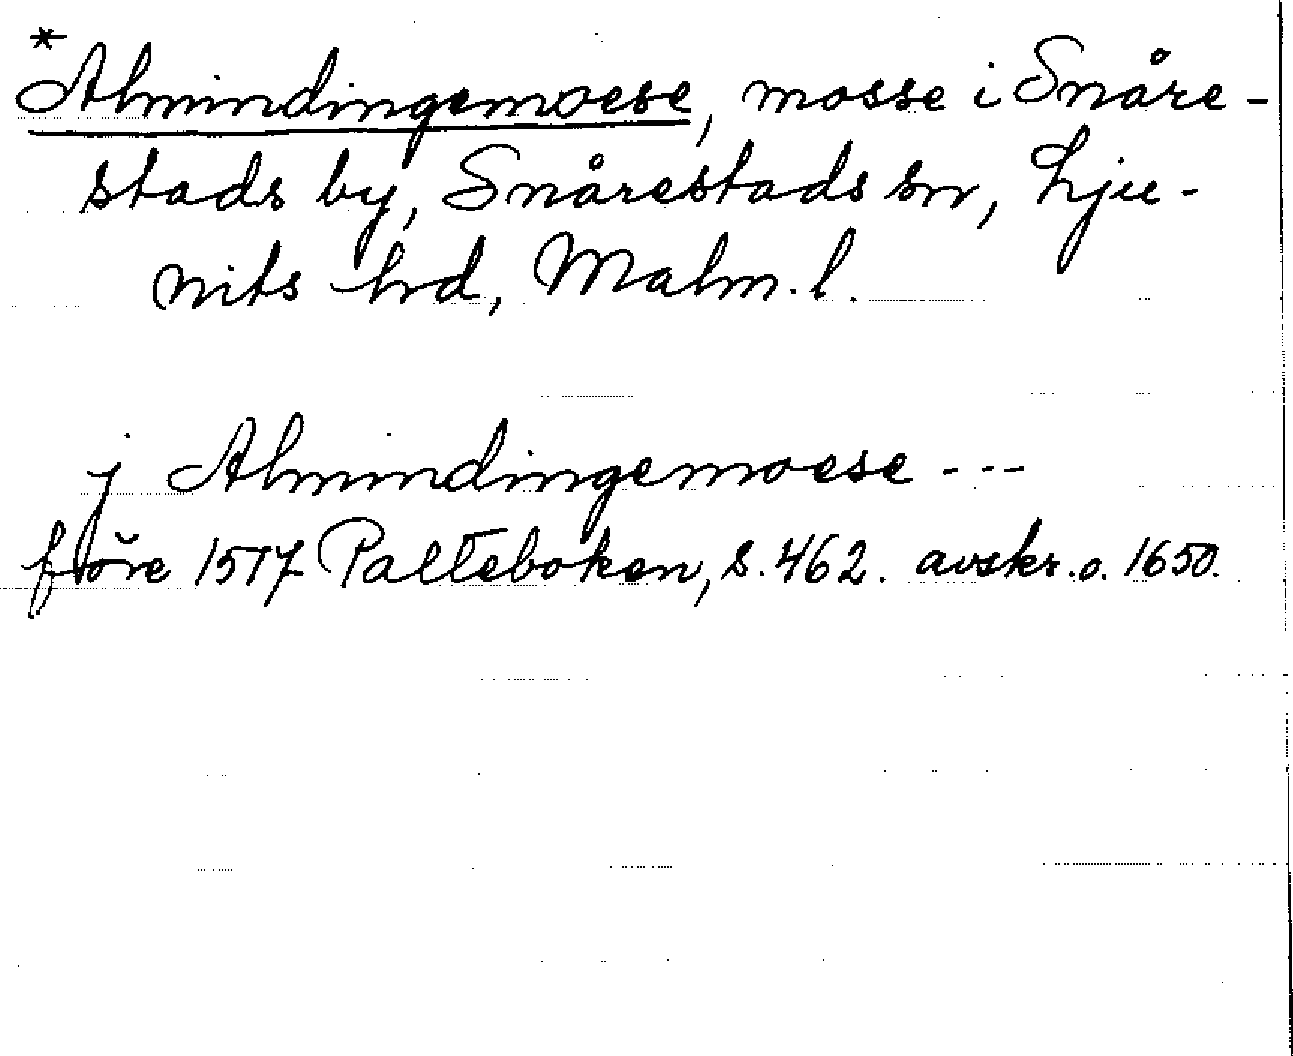 *Almindingemoese, mosse i Snåre-
stads by, Snårestads sn, Lju-
nits hrd, Malm. l.
j Almindingemoese ---
före 1517 Palteboken, s. 462. avskr. o. 1650.